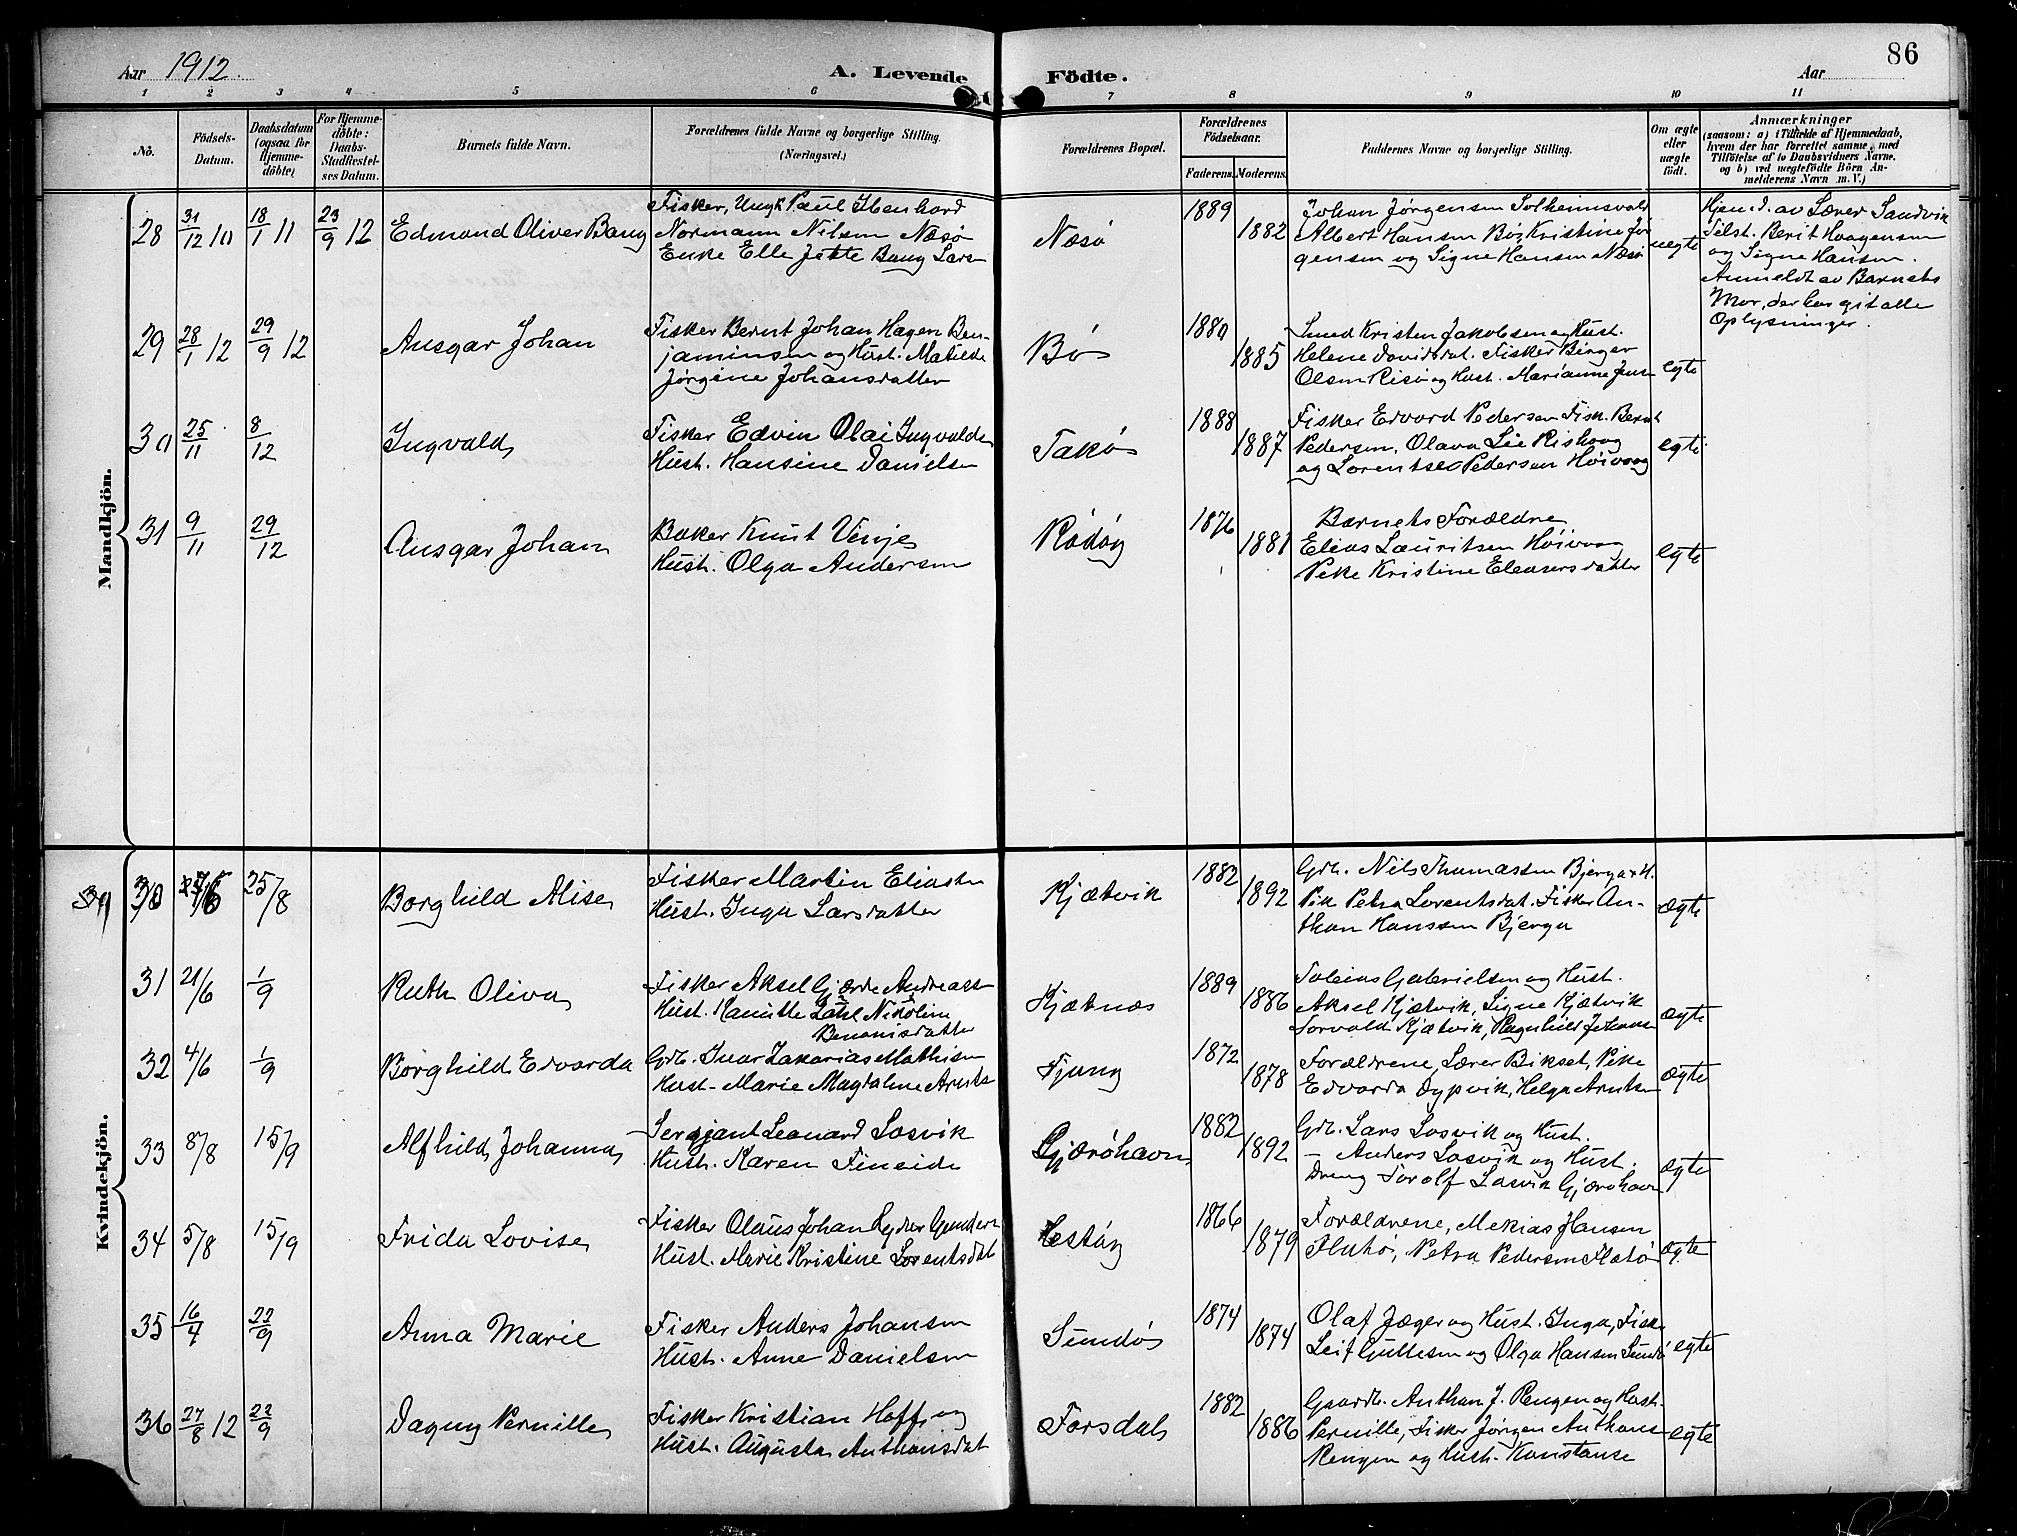 86
Aar 1912.
A. Levende Födte.
Aar
1 2 3 4 5 6 7 8 9 10 11
No.
Födsels-Datum.
Daabsdatum (ogsaa for Hjemme-döbte)
For Hjemme-döbte: Daabs-Stadfæstel-ses Datum.
Barnets fulde Navn.
Forældrenes fulde Navne og borgerlige Stilling.
(Næringsvei.)
Forældrenes Bopæl.
Forældrenes Födselsaar.
Faderens. Moderens.
Faddernes Navne og borgerlige Stilling.
Om ægte eller uægte födt.
Anmærkninger
(saasom: a) i Tilfælde af Hjemmedaab,
hvem der har forrettet samme, med
Tilföielse af to Daabsvidners Navne.
og b) ved uægtefödte Börn An-
melderens Navn m. V.)
Mandkjön.
28 31/12 10 18/1 11 23/9 12 Edmond Oliver Bang
Fisker, Ungk. Paul
Normann Nilsen Næsø
Enke Elle Jette Bang Lars
Næsø 1889 1882
Johan Jørgensen Solheimsvald
Albert Hansen Bø, Kristine Jør
gensen og Signe Hansen Næsø
uegte
Hjemd. av Lærer Sandvik
Tilst. Berit Haagensen
og Signe Hansen.
Anmeldt av Barnets
Mor, der har git alle
Oplysninger.
29 28/1 12 29/9 12 Ansgar Johan
Fisker Bernt Johan Hagen Ben-
jaminsen og Hust. Matilde
Jørgine Johansdatter
Bø 1880 1885
Smed Kristen Jakobsen og Hust.
Helene Davidsdat. Fisker Birger
Olsen Risø og Hust. Marianne Jens
egte
30 25/11 8/12 Ingvald
Fisker Edvin Olai Ingvalds
Hust. Hansine Danielsen
Takø 1888 1887
Fisker Edvard Pedersen Fisk. Bernt
Pedersen, Olava Lie
og Lorentse Pedersen Høivaag
egte
31 9/11 29/12 Ansgar Johan
Baker Knut Vinje
Hust. Olga Andersen
Rødøy 1876 1881
Barnets Forældre
Elias Lauritsen Høivaag
Pike Kristine Eleanorsdatter
egte
Kvindekjön.
30 25/8 Borghild Alise
Fisker Martin Eliassen
Hust. Inga Larsdatter
Kjætvik 1882 1892
Grb. Nils Thomassen Bjerga + H.
Pik Petra Lorentsdat. Fisker An-
than Hanssen Bjerga
ægte
31 21/6 1/9 Ruth Oliva
Fisker Aksel Gjærde Andreass
Hust. Kamitte Nikoline
Benonisdatter
Kjætnæs 1889 1886
Tobias Gabrielsen og Hust.
Aksel Kjætvik, Signe Kjætvik
Torvald Kjætvik, Ragnhild Johans
ægte
32 4/6 1/9 Borghild Edvarda
Grb. Ivar Zakarias Mathisen
Hust. Marie Magdalene Arnts
Tjung 1872 1878
Forældrene, Lærer Bikset, Pike
Edvarda Dypvik, Helga Arntsen
ægte
33 8/8 15/9 Alfhild Johanna
Sergjant Leonard Losvik
Hust. Karen Fineide
Gjærøhavn 1882 1892
Grb. Lars Losvik og Hust.
– Anders Losvik og Hust.
Dreng Torolf Losvik Gjærøhavn
ægte
34 5/8 15/9 Frida Lovise
Fisker Olaus Johan Lyder Gundern
Hust. Marie Kristine Lorentsdat
Hestøy 1866 1879
Forældrene, Mekias Hansen
Flatø, Petra Pedersen Flatø
ægte
35 16/4 22/9 Anna Marie
Fisker Anders Johansen
Hust. Anne Danielsen
Sundø 1874 1874
Olaf Jæger og Hust. Inga, Fisk.
Leif Gullesen og Olga Hansen Sundø
egte
36 27/8 12 22/9 Dagny Pernille
Fisker Kristian Hoff og
Hust. Augusta Anthonsdat
Forsdal 1882 1886
Gaardb. Anthon J. Rengen og Hust.
Pernille, Fisker Jørgen Anthons
Rengen og Hust. Konstanse
egte